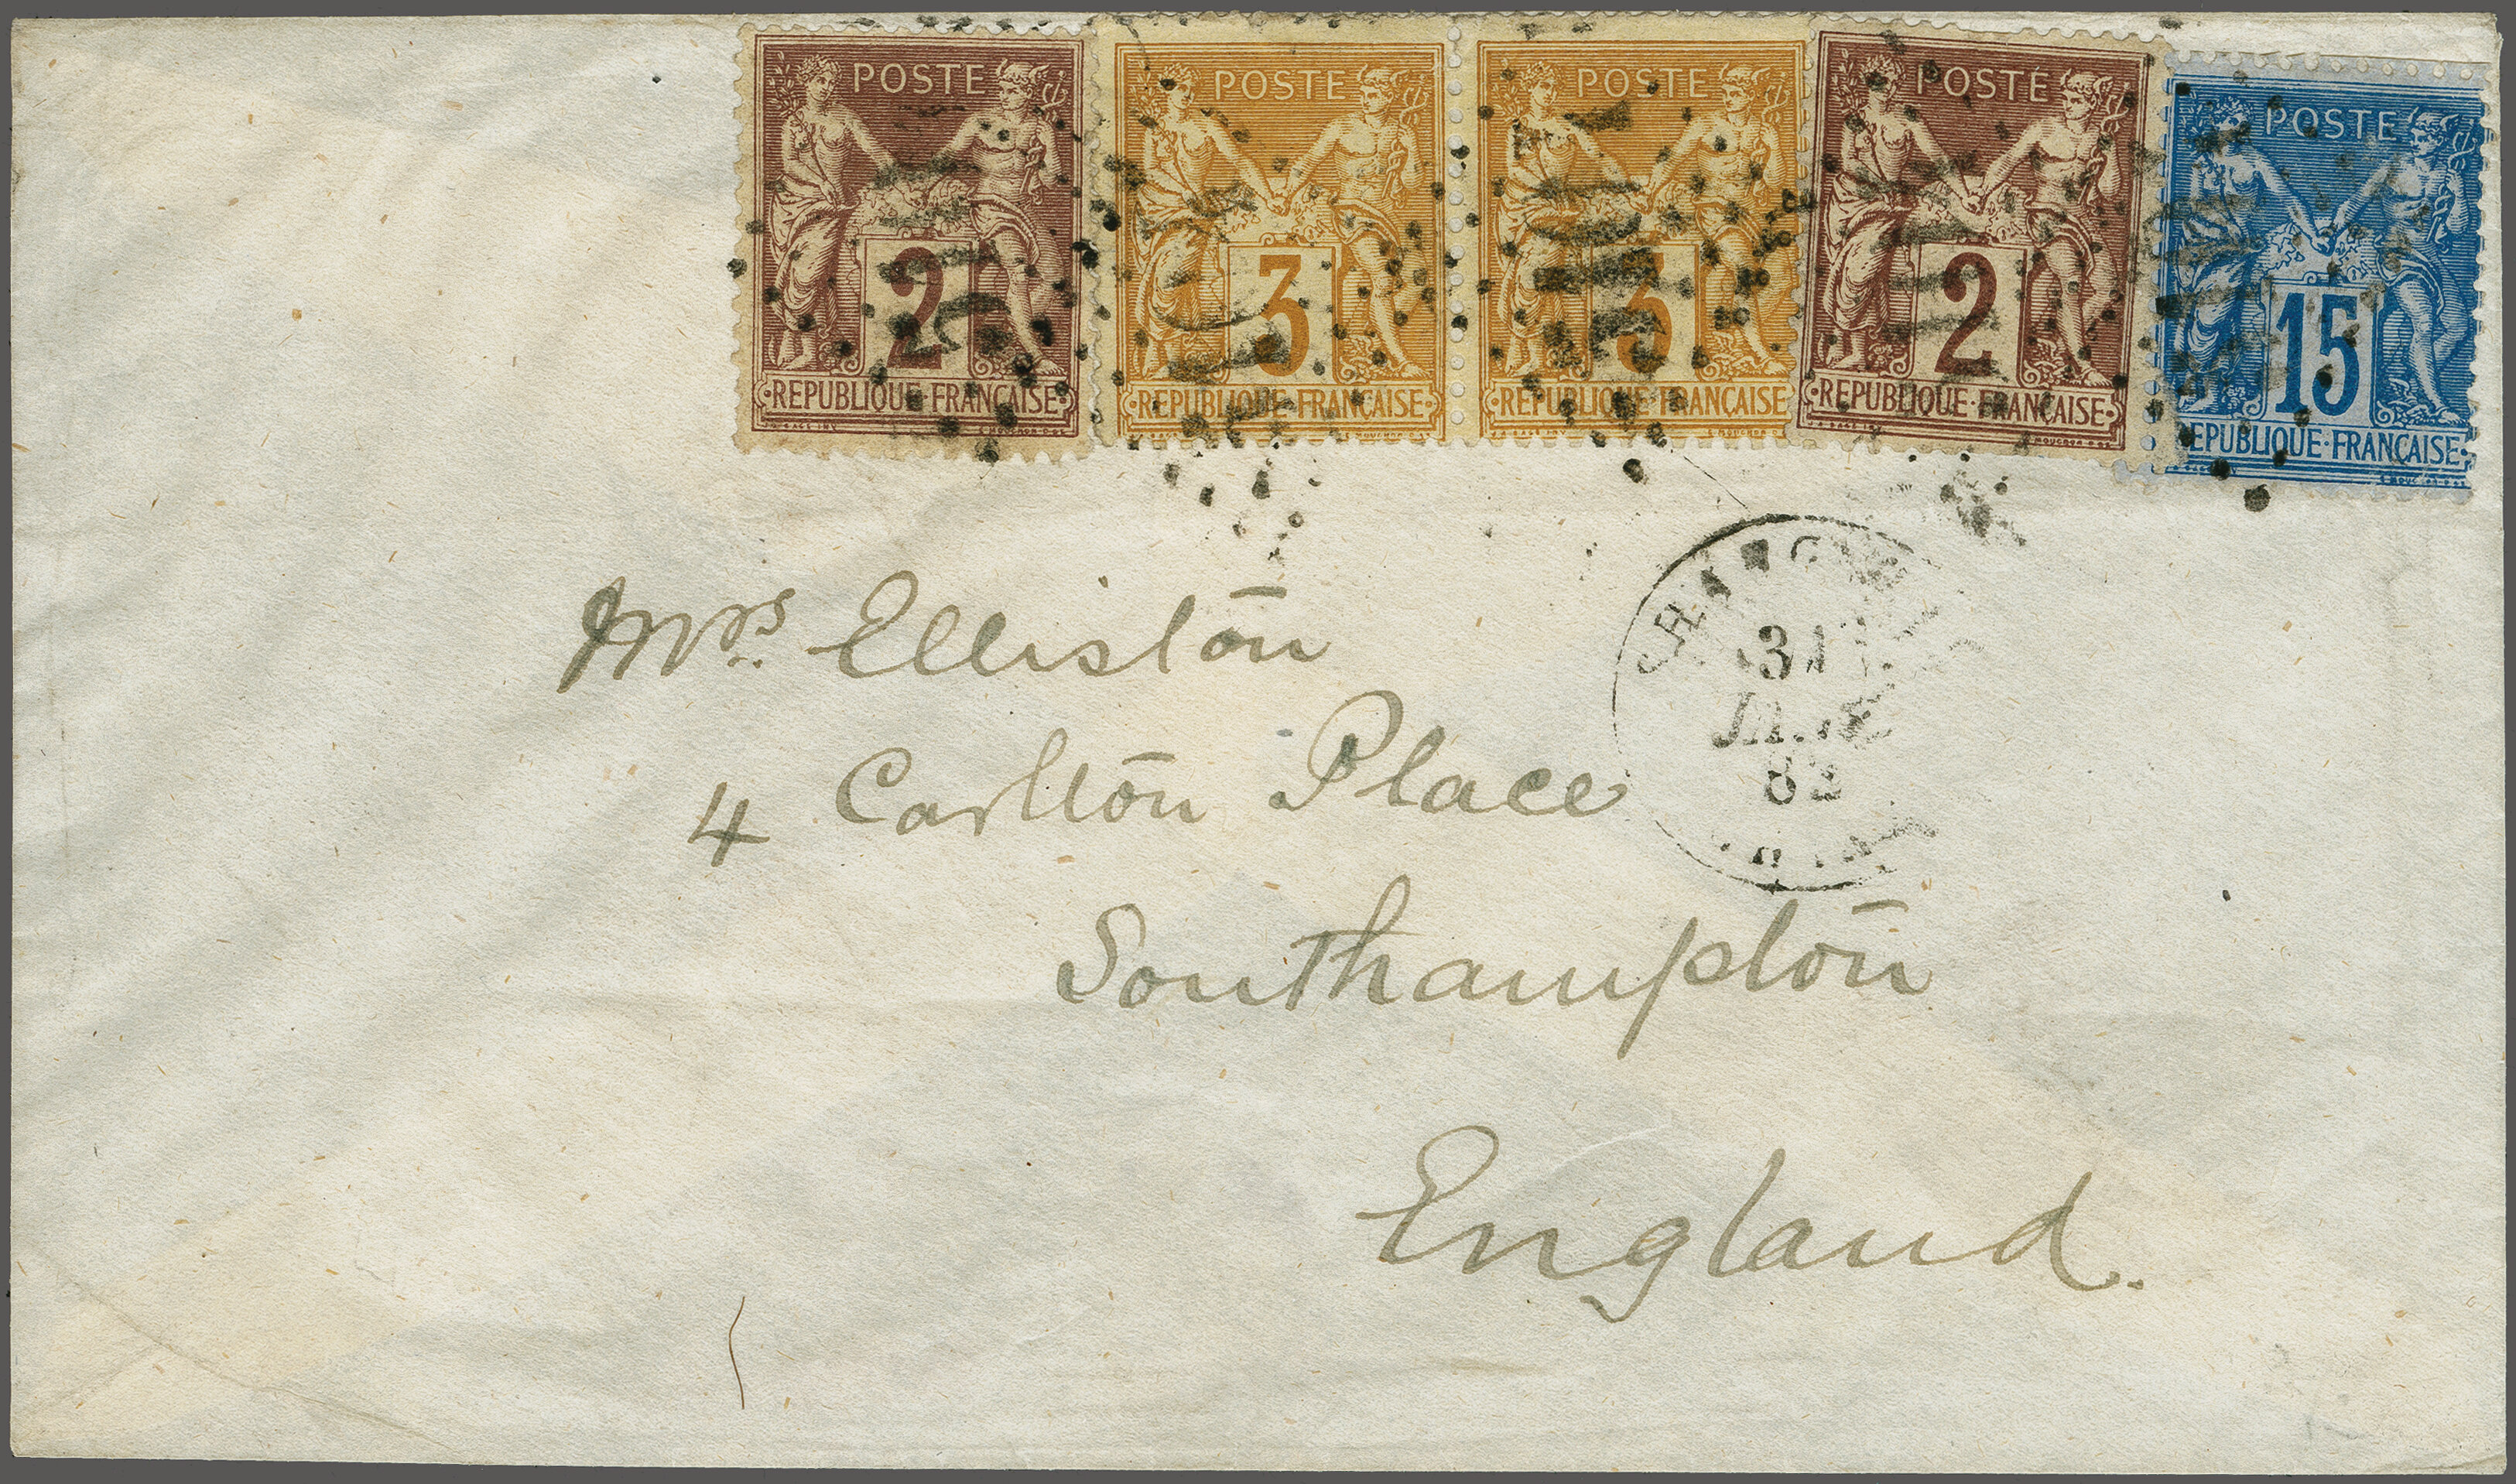 POSTE
2
REPUBLIQUE·FRANÇAISE
POSTE
3
REPUBLIQUE·FRANÇAISE
POSTE
3
REPUBLIQUE·FRANÇAISE
POSTE
2
REPUBLIQUE·FRANÇAISE
POSTE
15
EPUBLIQUE·FRANÇAISE
31
82
Mrs. Elliston
4 Carlton Place
Southampton
England.